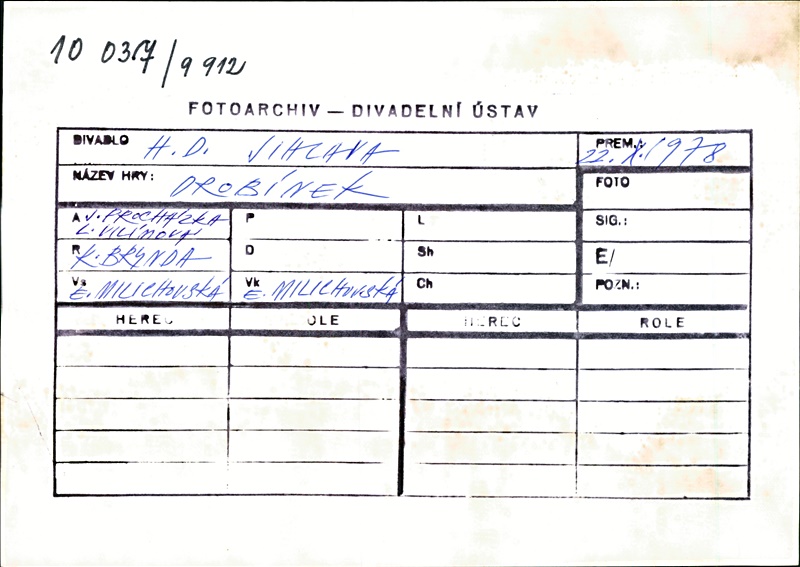 10 037/9 912
FOTOARCHIV — DIVADELNÍ ÚSTAV
DIVADLO H.D. JIHLAVA
PREM.: 22. X. 1978
NÁZEV HRY: DROBÍNEK
FOTO
A J. PROCHÁZKA
L. VILÍMOVÁ
P
L
SIG.:
R K. BRYNDA
D
Sh
E/
Vs E. MILICHOVSKÁ
Vk E. MILICHOVSKÁ
Ch
POZN.:
HEREC OLE HEREC ROLE